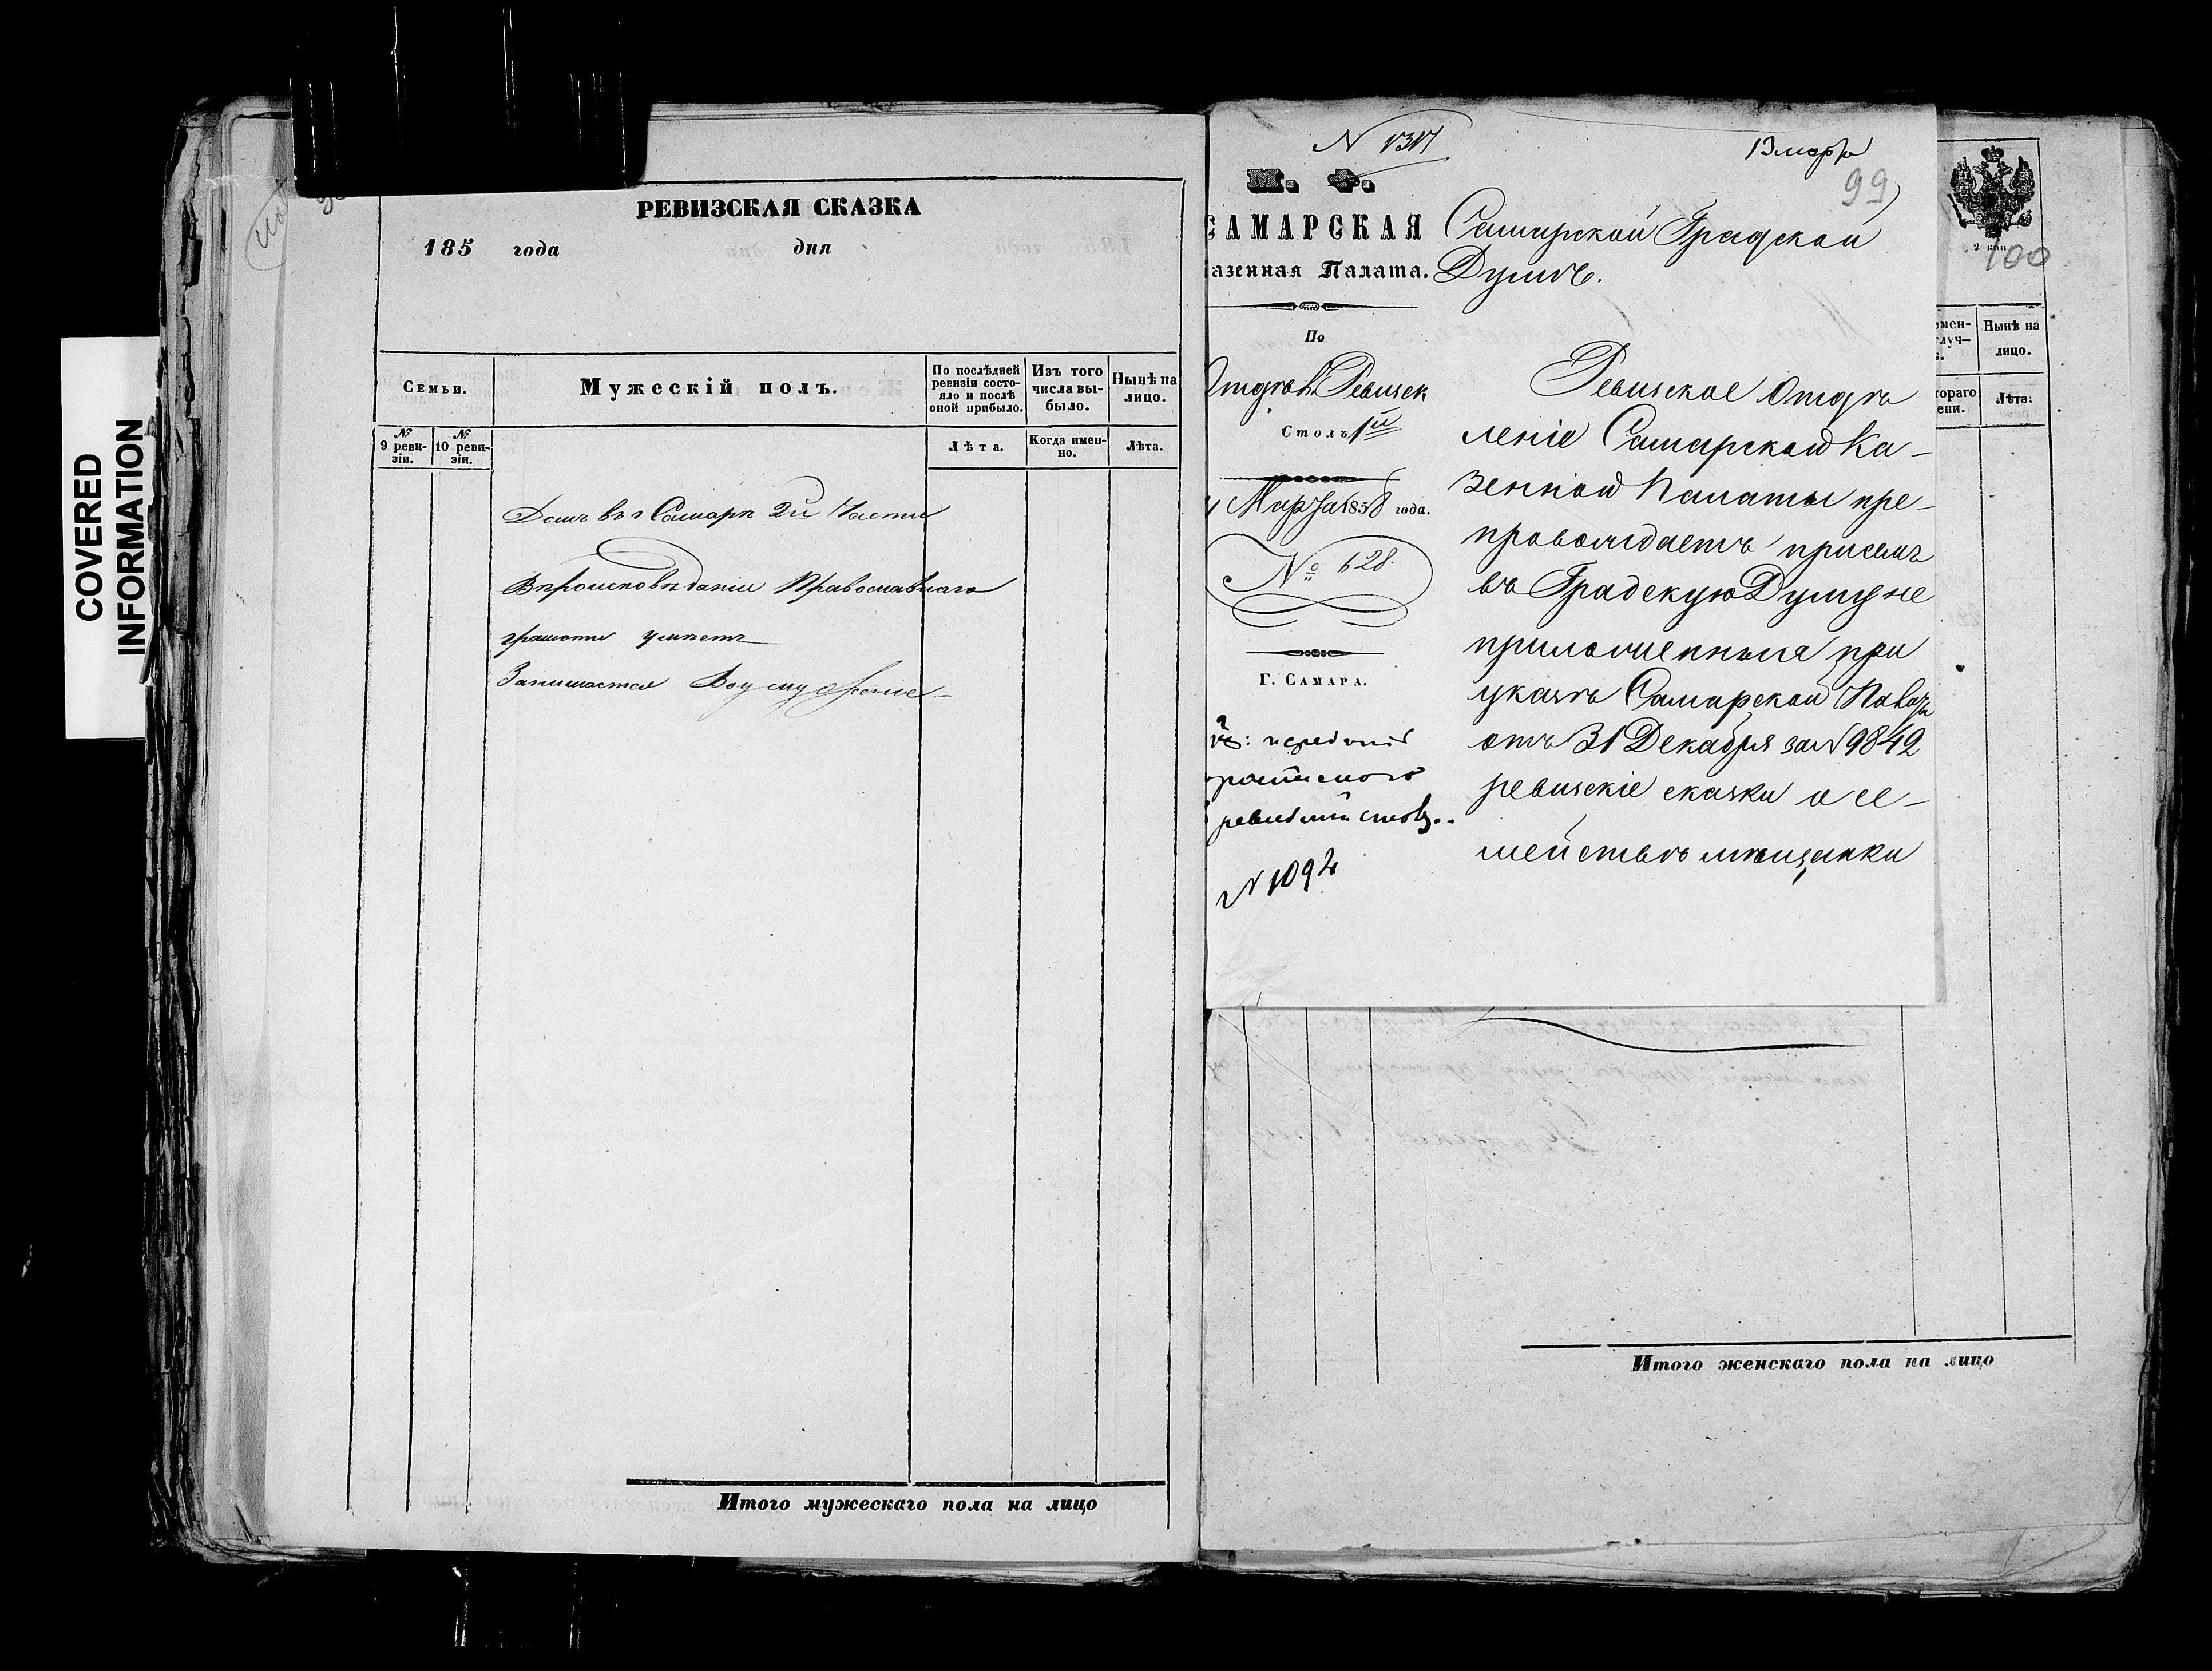 COVERED
INFORMATION
РЕВИЗСКАЯ СКАЗКА
185 года дня
Семьи.
Мужескій полъ.
По послѣдней ревизіи состояло и послѣ оной прибыло.
Изъ того числа выбыло.
Нынѣ на лицо.
№ 9 ревизіи.
№ 10 ревизіи.
Лѣта.
Когда именно.
Лѣта.
Домъ въ г Самарѣ 2й Части
Вѣроисповѣданія Православнаго
грамоте умѣетъ
Занимается
Итого мужескаго пола на лицо
N 1317
13 марта
99
М. Ф.
САМАРСКАЯ
азенная Палата.
По
Отдѣл. Ревизск
Столъ 1й
Марта 1858 года.
№ 628.
Г. САМАРА.
N 1092
Самарской Градской
Думѣ.
Ревизское Отдѣ
леніе Самарской Ка-
зенной Палаты пре-
провождаетъ присемъ
въ Градскую Думу не
приложенныя при
указѣ Самарской Палаты
отъ 31 Декабря за N 9842
ревизскіе сказки о се-
мействѣ мѣщанки
2 коп
100
Нынѣ на лицо.
Лѣта.
Итого женскаго пола на лицо